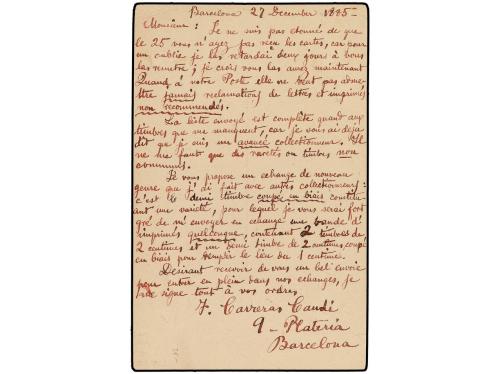 Barcelona 27 December 1885 -
Monsieur : Je ne suis pas étonné de que
le 25 vous n'ayez pas reçu les cartes, car pour
un oublie je les retardai deux jours à vous
les remettre ; je crois vous les avez maintenant
Quand à notre Poste elle ne veut pas admettre
jamais reclamations de lettres et imprimés
non recommendés.
La liste envoyé est complête quant aux
timbres que me manquent, car je vous ai dejà
dit que je suis un avancé collectionneur. Il
ne me faut que des raretés ou timbres non
communs.
Je vous propose un echange de nouveau
genre que j'ai fait avec autres collectionneurs :
c'est le demi timbre coupé en biais constituant
une varieté, pour lequel je vous serai fort
gré de m'envoyer en échange une bande d'
imprimés quelconque, contenant 2 timbres de
2 centimes et un demi timbre de 2 centimes, coupé
en biais pour remplir le lieu du 1 centime.
Desirant recevoir de vous un bel envoie
pour entrer en plein dans nos echanges, je
me signe tout à vos ordres
F. Carreras Candi
9 - Plateria
Barcelona